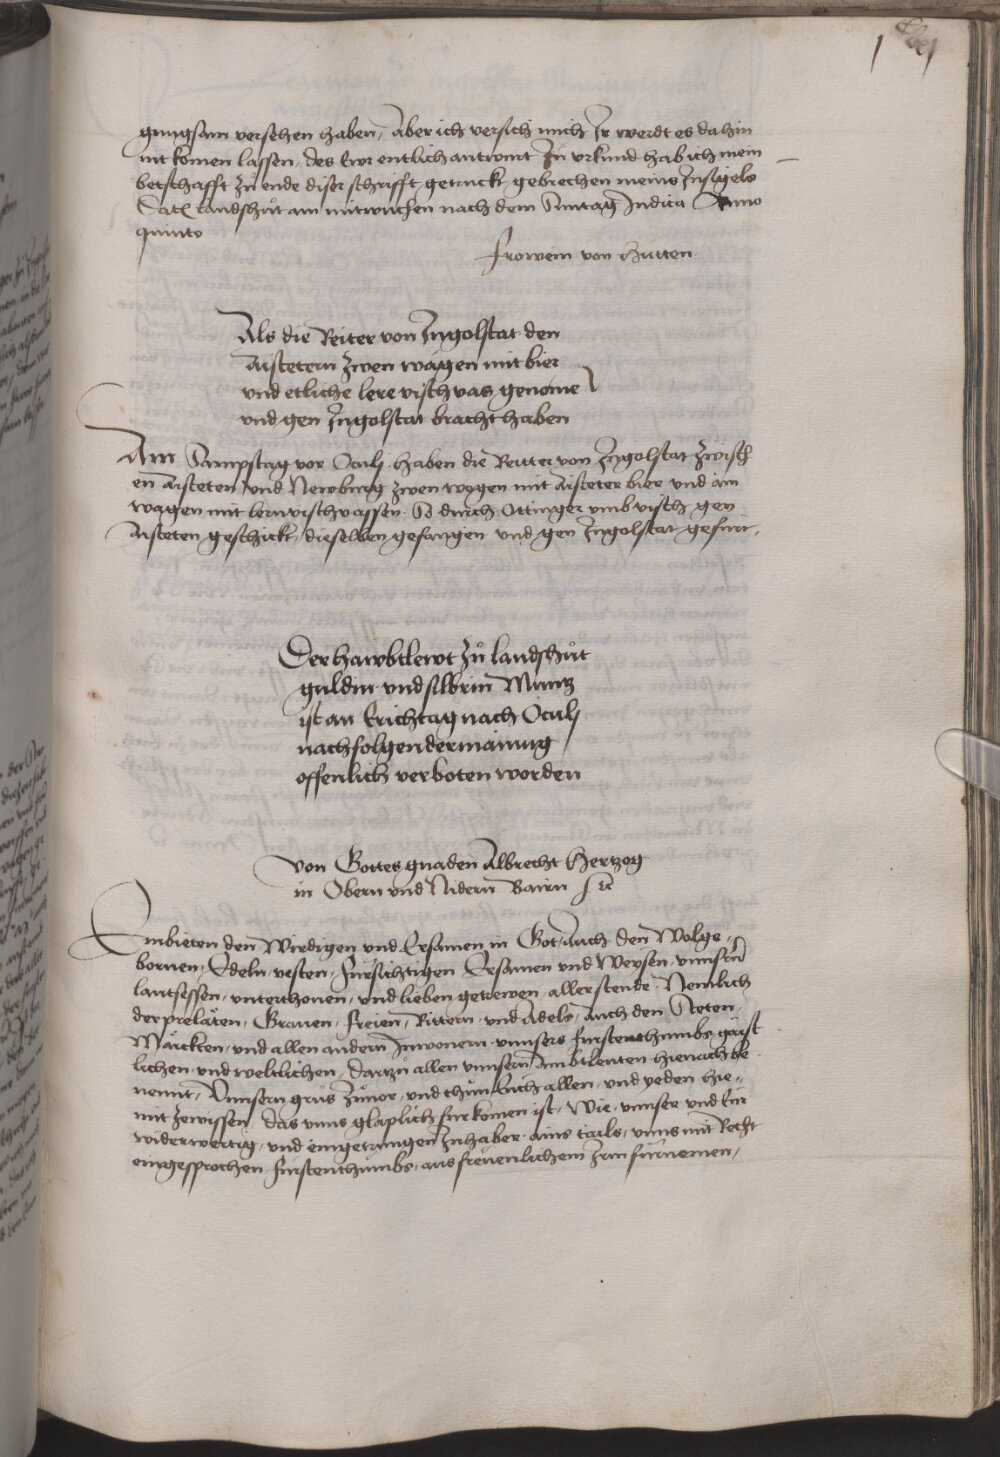 gnugsam versehen haben, Aber ich versich mich Ir werdt es dahin
nit komen lassen, des Ewr entlich antwurt Zu vrkund hab ich mein
betschafft zu ende diser schrifft getruckt gebrechen meins Insigels
Datum Landshůt am mitwuchen nach dem Suntag Judica Anno
quinto
Frowein von Hutten
Als die Reiter von Ingolstat den
Aistetern zwen wagen mit bier
vnd etliche lere visch vas genome
vnd gen Ingolstat bracht haben
Am Sampstag vor Oculj haben die Reitter von Ingolstat zwisch
en Aisteten vnd Newburg zwen wegen mit Aisteter bier vnd ain
wagen mit lern vischvassen So durch Ottinger vmb visch gen
Aisteten geschickt, dieselben gefangen vnd gen Ingolstat gefurt,
Der hawbtlewt zů Landshůt
guldin vnd silbrin Muntz
ist an Erichtag nach Oculj
nachfolgender mainung
offenlich verboten worden
Von Gottes gnaden Albrecht Hertzog
in Obern vnd Nidern Bairn
Embieten den Wirdigen vnd Ersamen in Got, auch den Wolge,,
bornen, Edeln, vesten, Fursichtigen Ersamen vnd Weysen, vnnsern
lantsessen, vnterthonen, vnd lieben getrewen, aller stende, Nemlich
der prelaten, Grauen, freien, Rittern, vnd Adels, auch den Steten
Märckten, vnd allen andern Inwonern vnnsers furstenthumbs, geist
lichen vnd weltlichen, Darzu allen vnnsern Ambtleuten hienach be
nennt, Vnnsern grus zuuor, vnd thun Euch allen, vnd yeden hie,,
mit zewissen, das vnns glaplich furkomen ist, Wie vnnser vnd Eur
widerwertig, vnd eingetrungen Inhaber ains tails, vnns mit Recht
eingesprochen furstenthumbs, aus freuenlichem Irm furnemen,